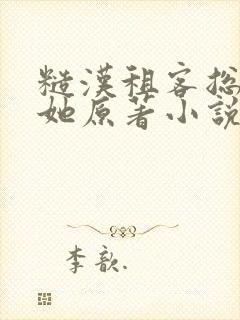 糙漢租客總
她原著小說
李歆.